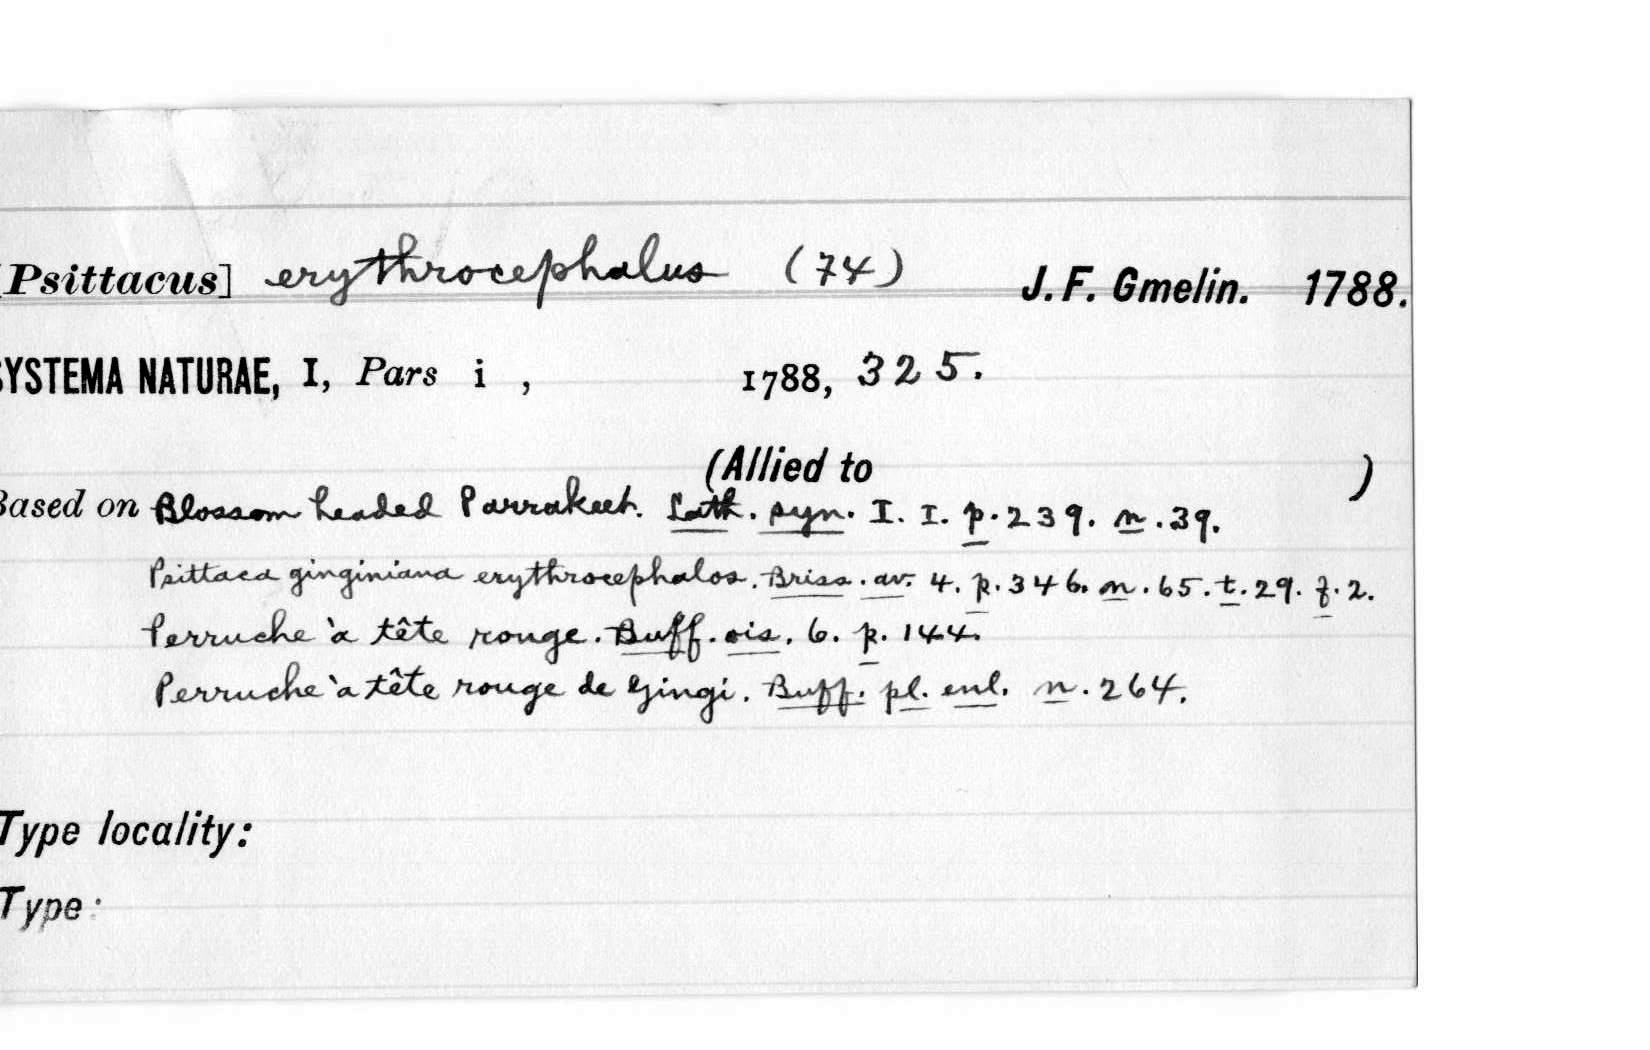 [Psittacus] erythrocephalus (74) J. F. Gmelin. 1788.
SYSTEMA NATURAE, I, Pars i, 1788, 325.
(Allied to )
Based on Blossom headed Parrakeet. Lath. syn. I. I. p. 239. n. 39.
Psittaca ginginiana erythrocephalos. Briss. av. 4. p. 346. n. 65. t. 29. f. 2.
Perruche à tête rouge. Buff. ois. 6. p. 144.
Perruche à tête rouge de Gingi. Buff. pl. enl. n. 264.
Type locality:
Type: